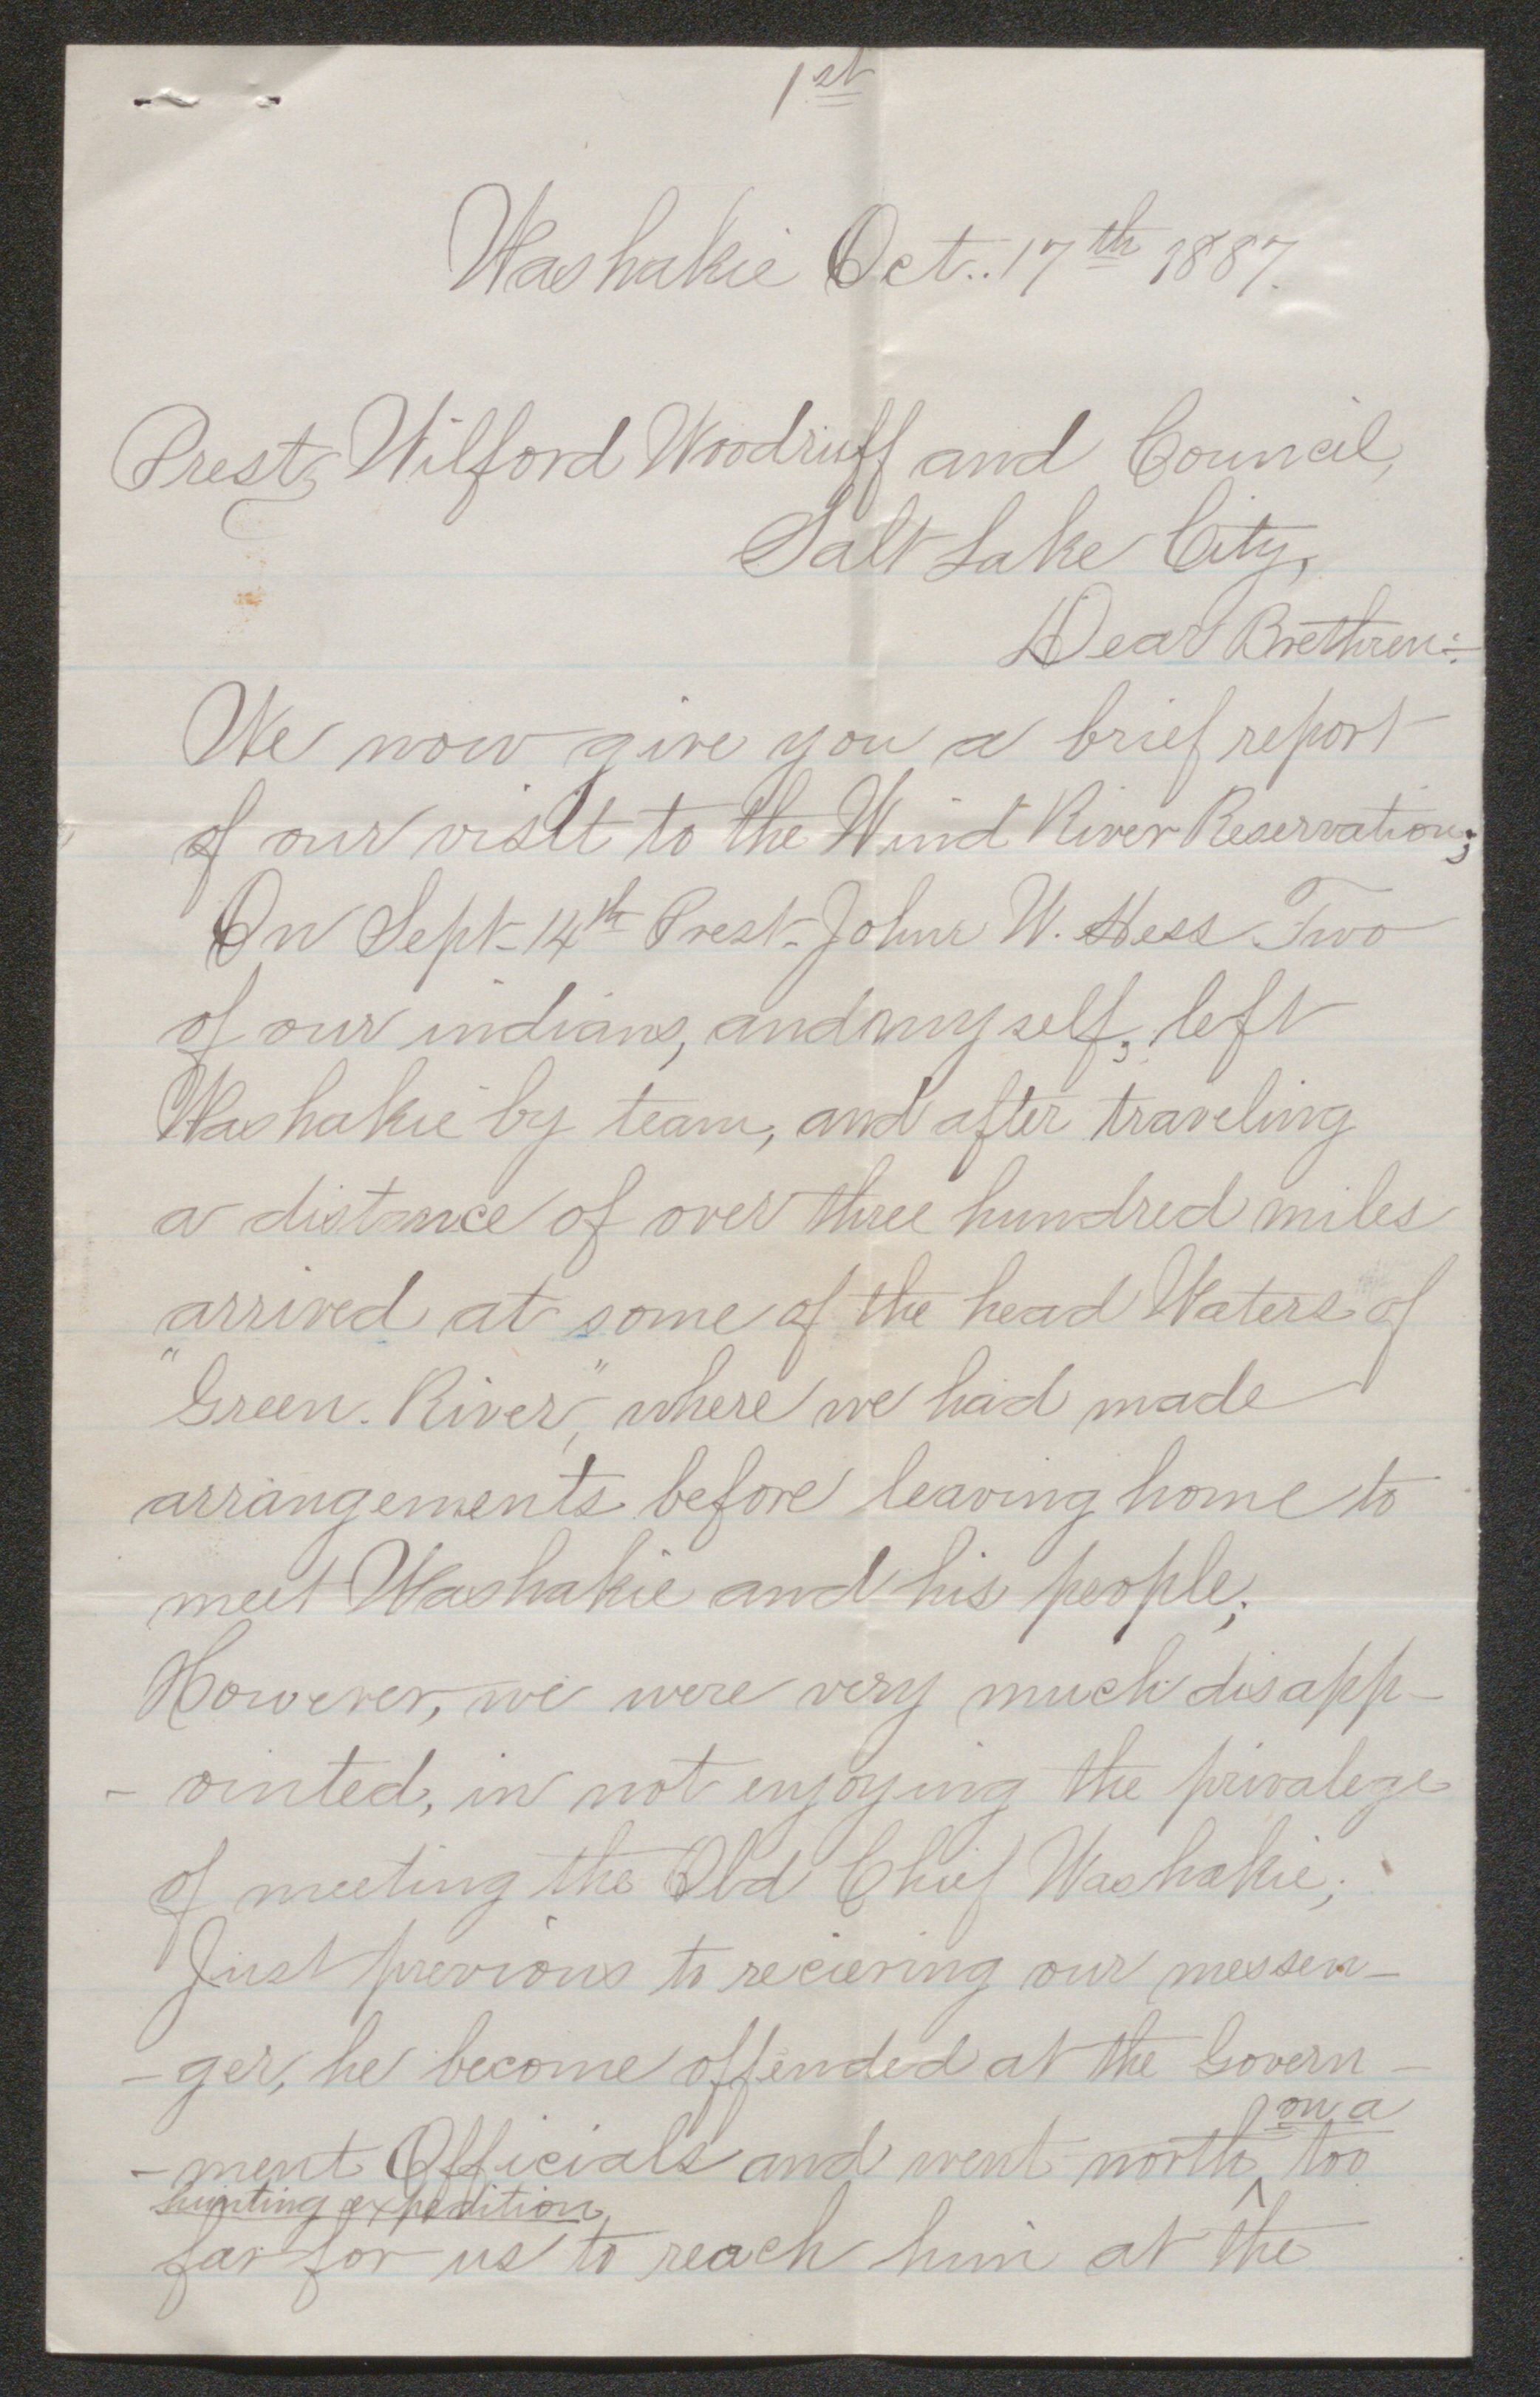 1st
Washakie Oct. 17th 1887.
Prest, Wilford Woodruff and Council,
Salt Lake City,
Dear Brethren:
We now give you a brief report
of our visit to the Wind River Reservation;
On Sept. 14th Prest. John W. Hess Two
of our indians, and myself, left
Washakie by team, and after traveling
a distance of over three hundred miles
arrived at some of the head Waters of
"Green River", where we had made
arrangements before leaving home to
meet Washakie and his people;
However, we were very much disapp-
-ointed, in not enjoying the privalege
of meeting the Old Chief Washakie;
Just previous to recieving our messen-
-ger, he become offended at the Govern-
on a
-ment Officials and went north ^ too
hunting expedition,
far for us to reach him at the